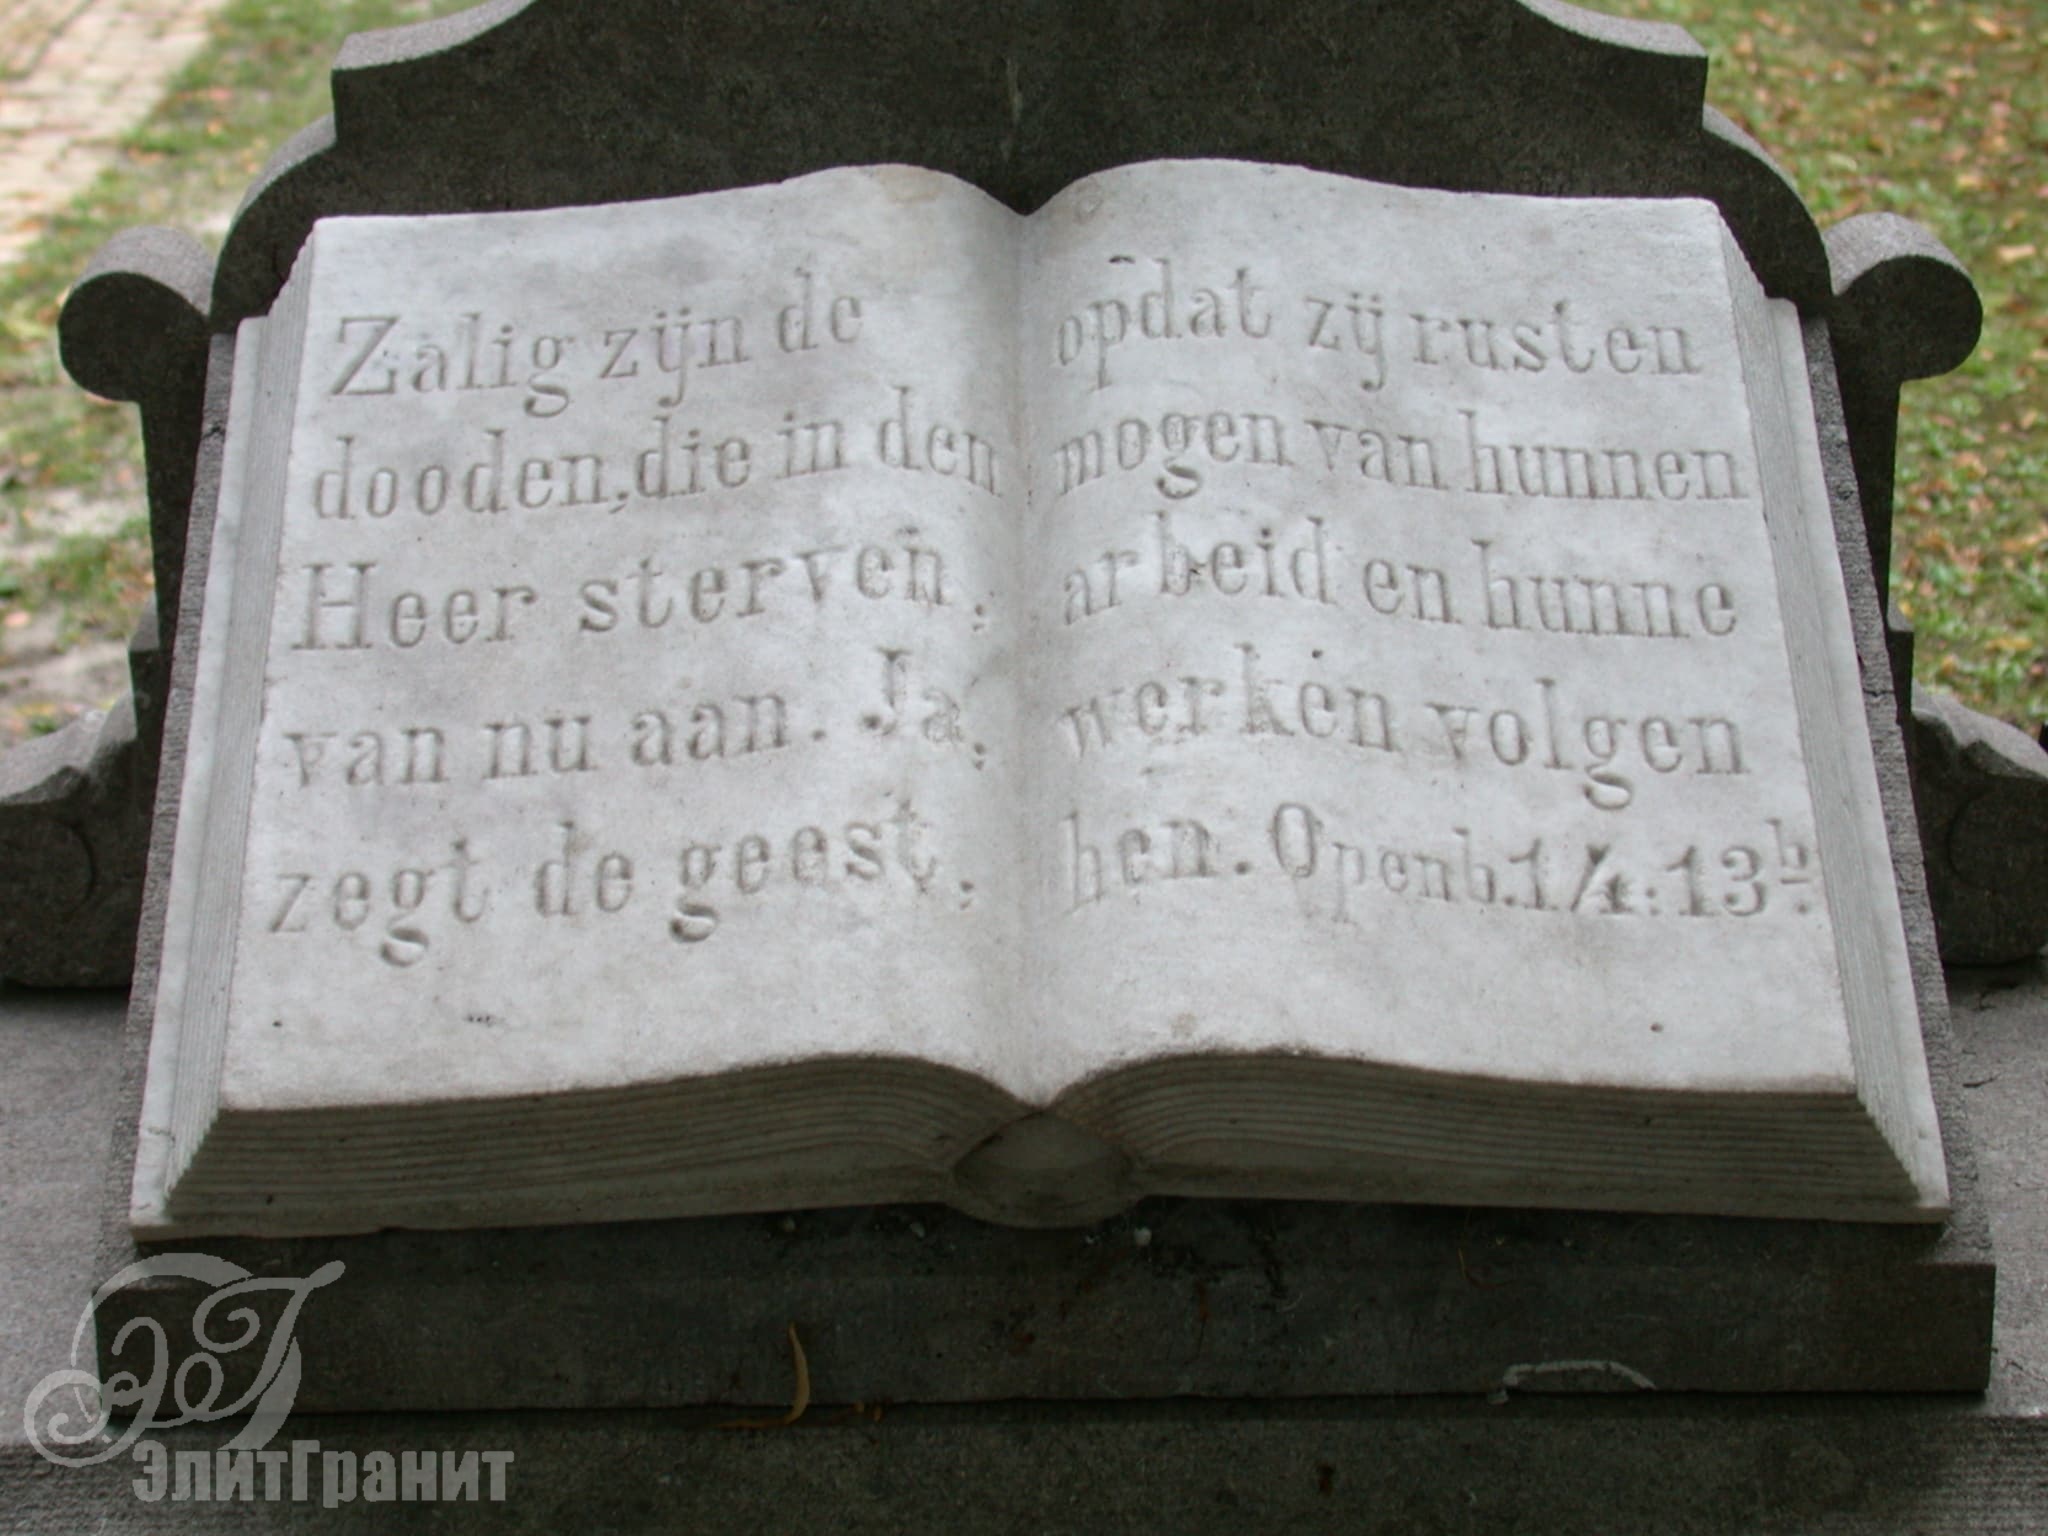 Zalig zijn de
dooden, die in den
Heer sterven,
van nu aan. Ja,
zegt de geest,
opdat zij rusten
mogen van hunnen
arbeid en hunne
werken volgen
hen. Openb. 14:13b.
ЭлитГранит